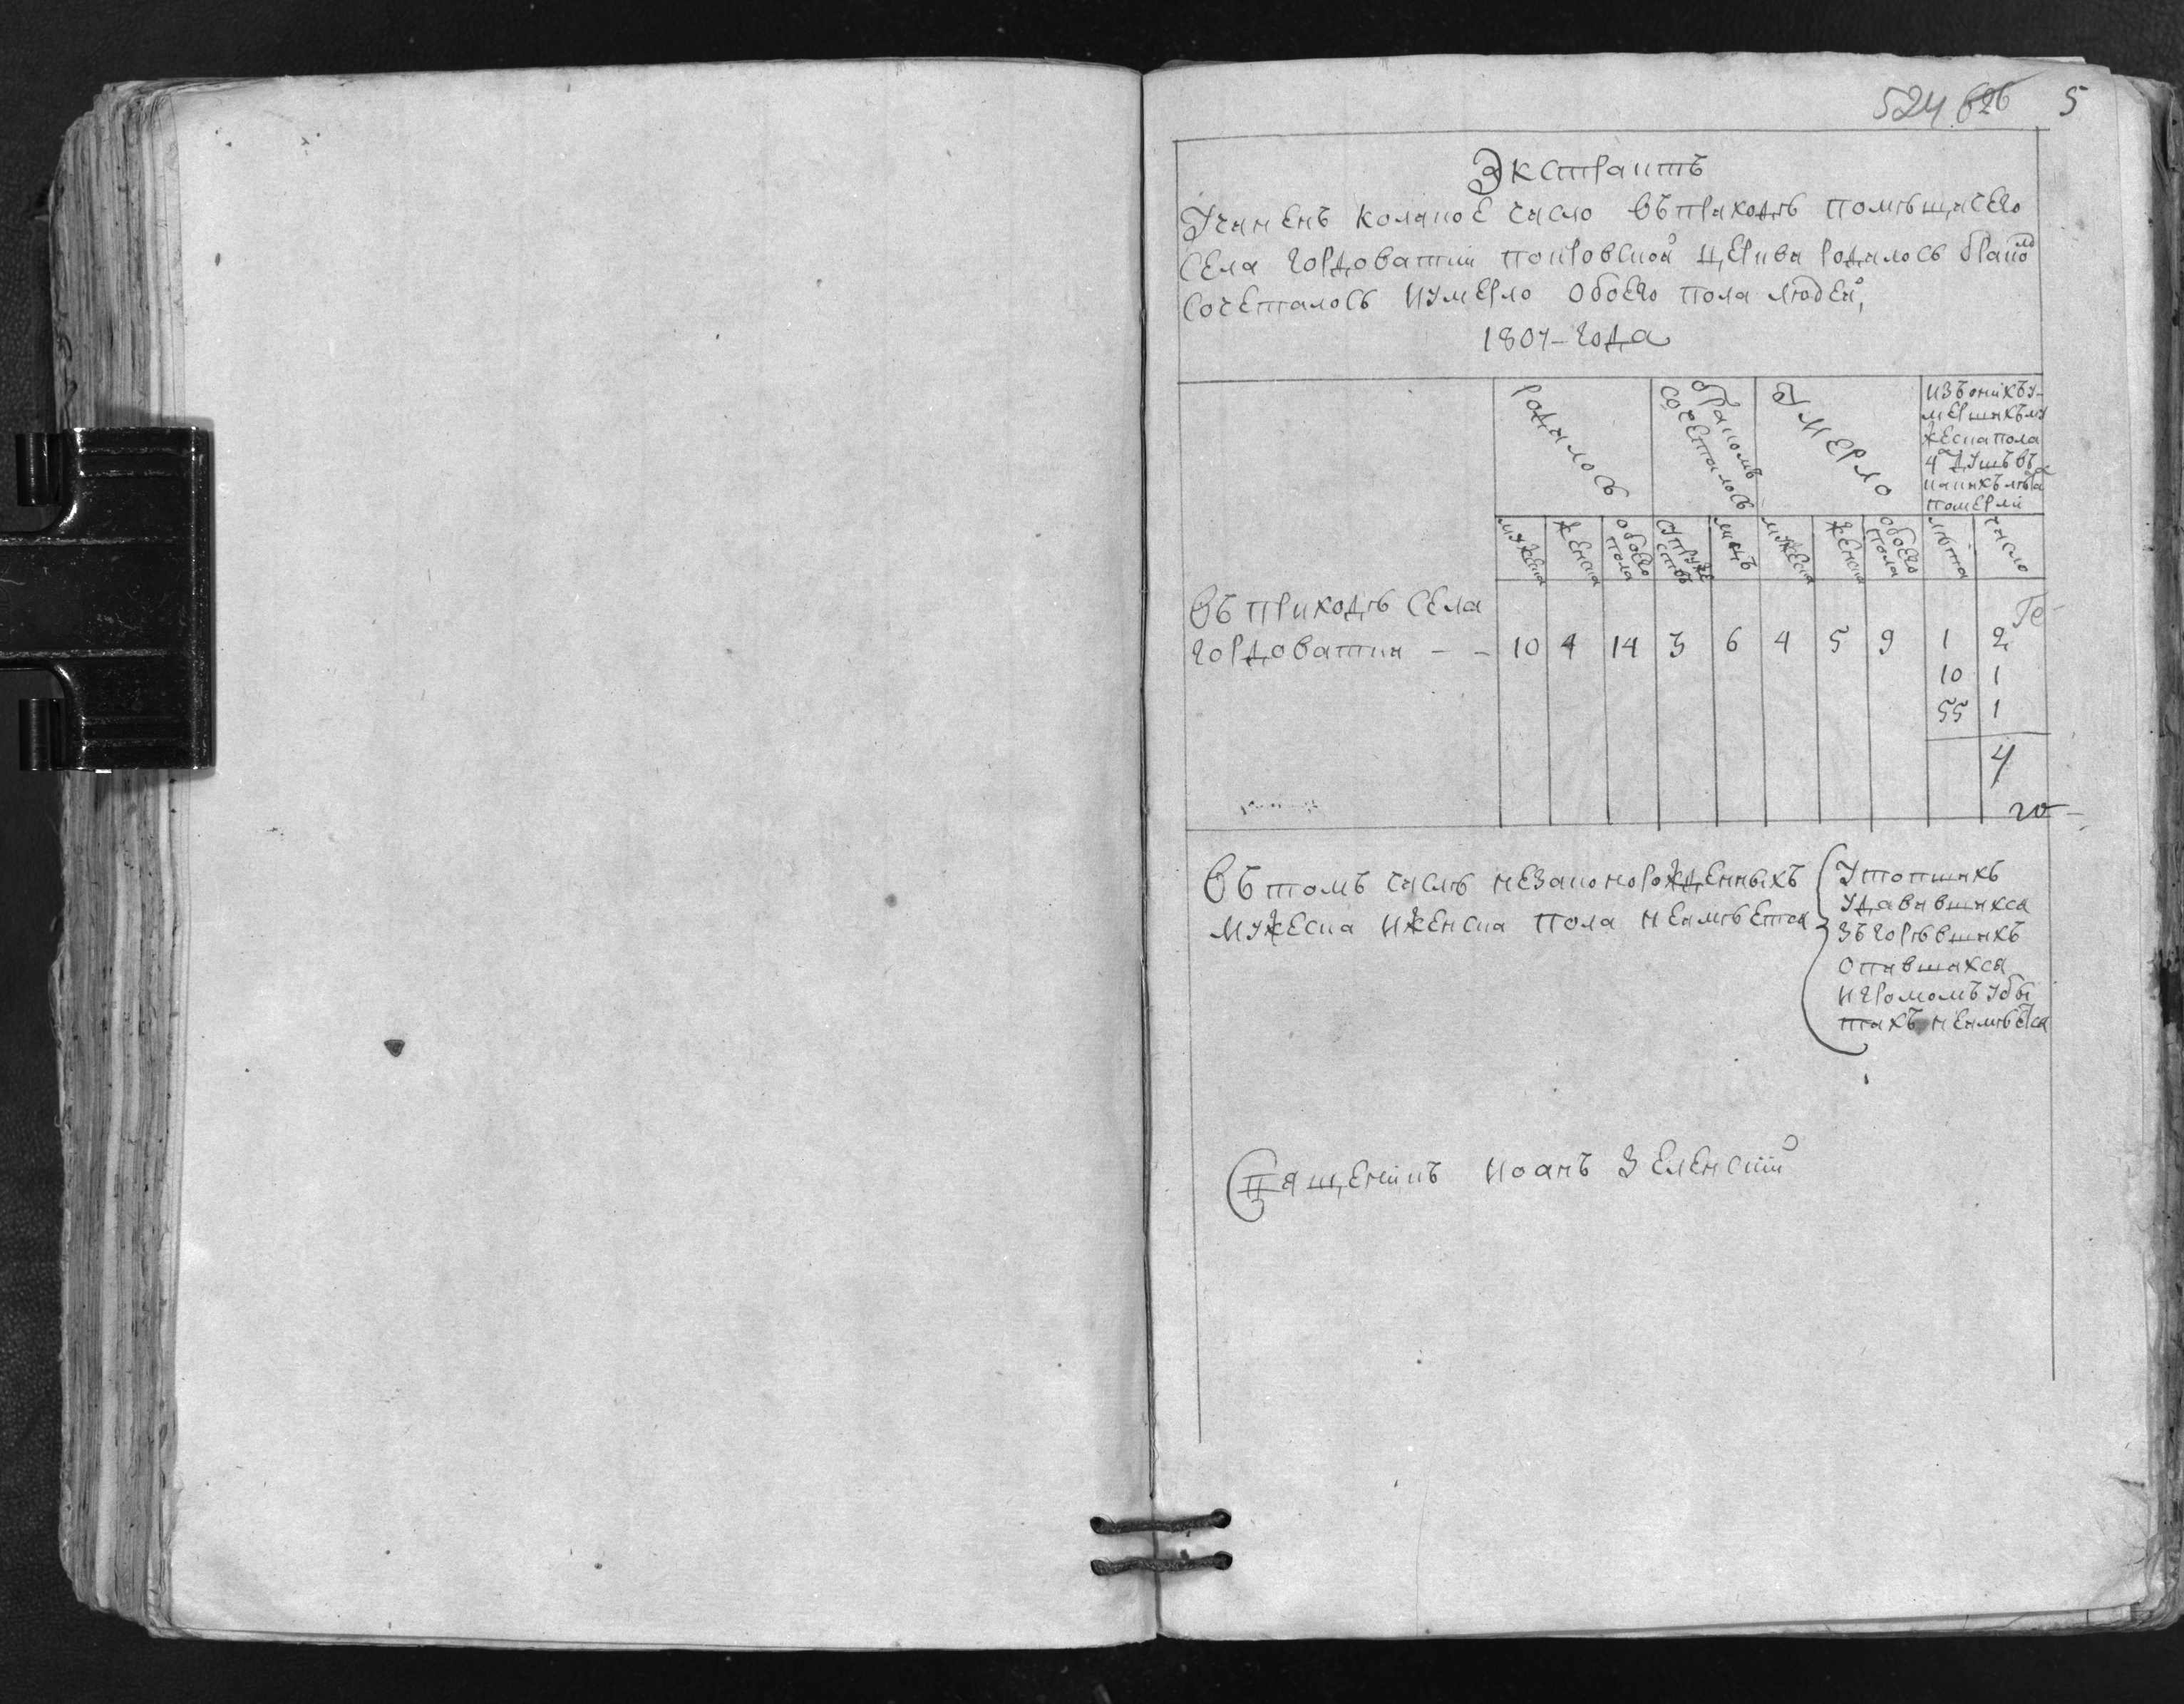 524 626 5
Экстрактъ
Учиненъ коликое число въ приходѣ помѣщичего
села Гордоватки покровской церкви родилось бракомъ
сочеталось и умерло обоего пола людей,
1807-года
родилось
бракомъ сочеталось
Умерло
изъ онихъ у-
мершихъ му
жеска пола
4 душъ въ
какихъ лѣтахъ
померли
мужеска
женска
обоего пола
супружествъ
лицъ
мужеска
женска
обоего пола
лѣта
число
Въ приходѣ села
Гордоватки - - 10 4 14 3 6 4 5 9 1 2
10 1
55 1
4
Въ томъ числѣ незаконорожденныхъ
мужеска и женска пола неимѣется
Утопшихъ
удавившихся
згорѣвшихъ
опившихся
и громомъ уби
тихъ неимѣется
Священникъ Иоанъ Зеленскій